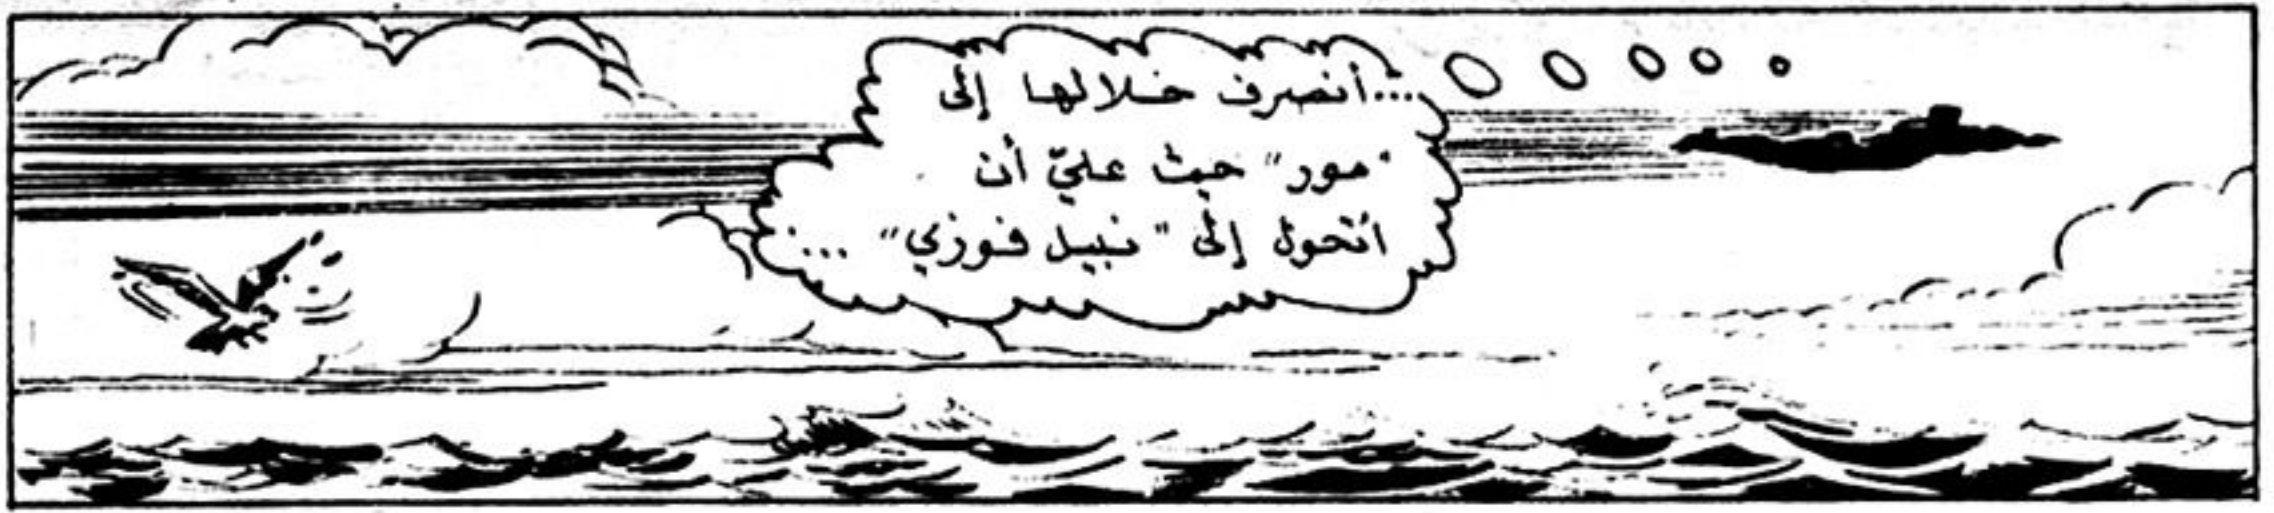 ...أنصرف خلالها إلى
"مور" حيث عليّ أن
أتحول إلى "نبيل فوزي"...